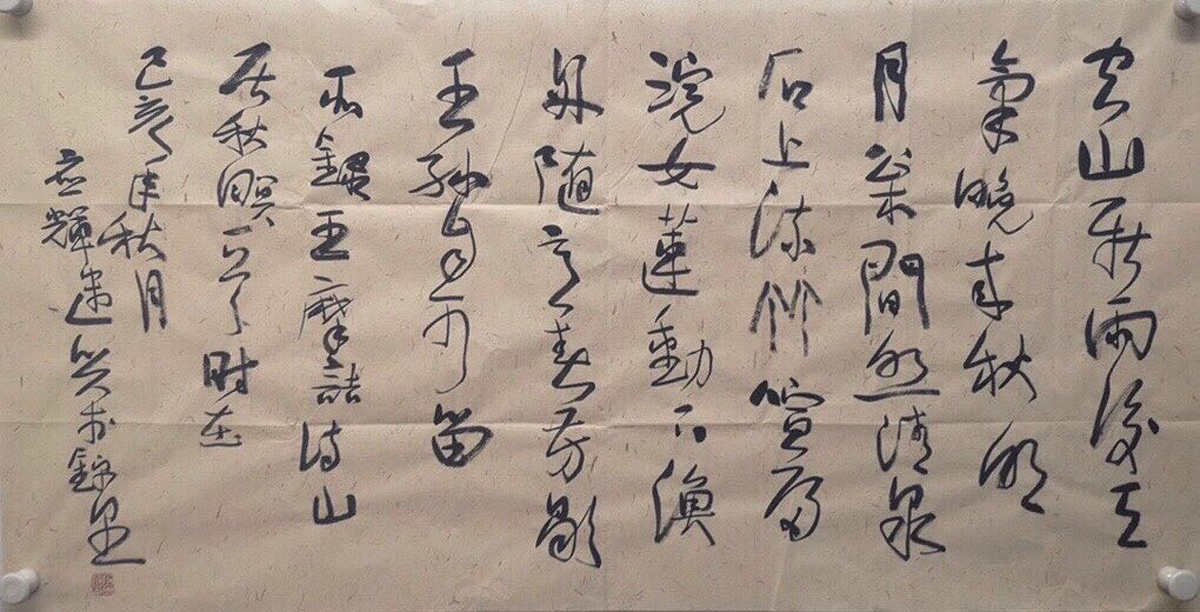 空山新雨後天
氣晚來秋明
月松間照清泉
石上流竹喧歸
浣女蓮動下漁
舟隨意春芳歇
王孫自可留
右錄王摩詰詩山
居秋暝一首時在
己亥年秋月
應輝遣興於錦里